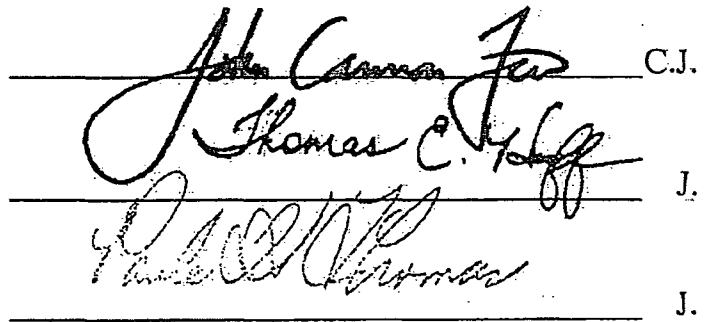 John Cannon Few C.J.
Thomas E. Huff J.
Thomas J.